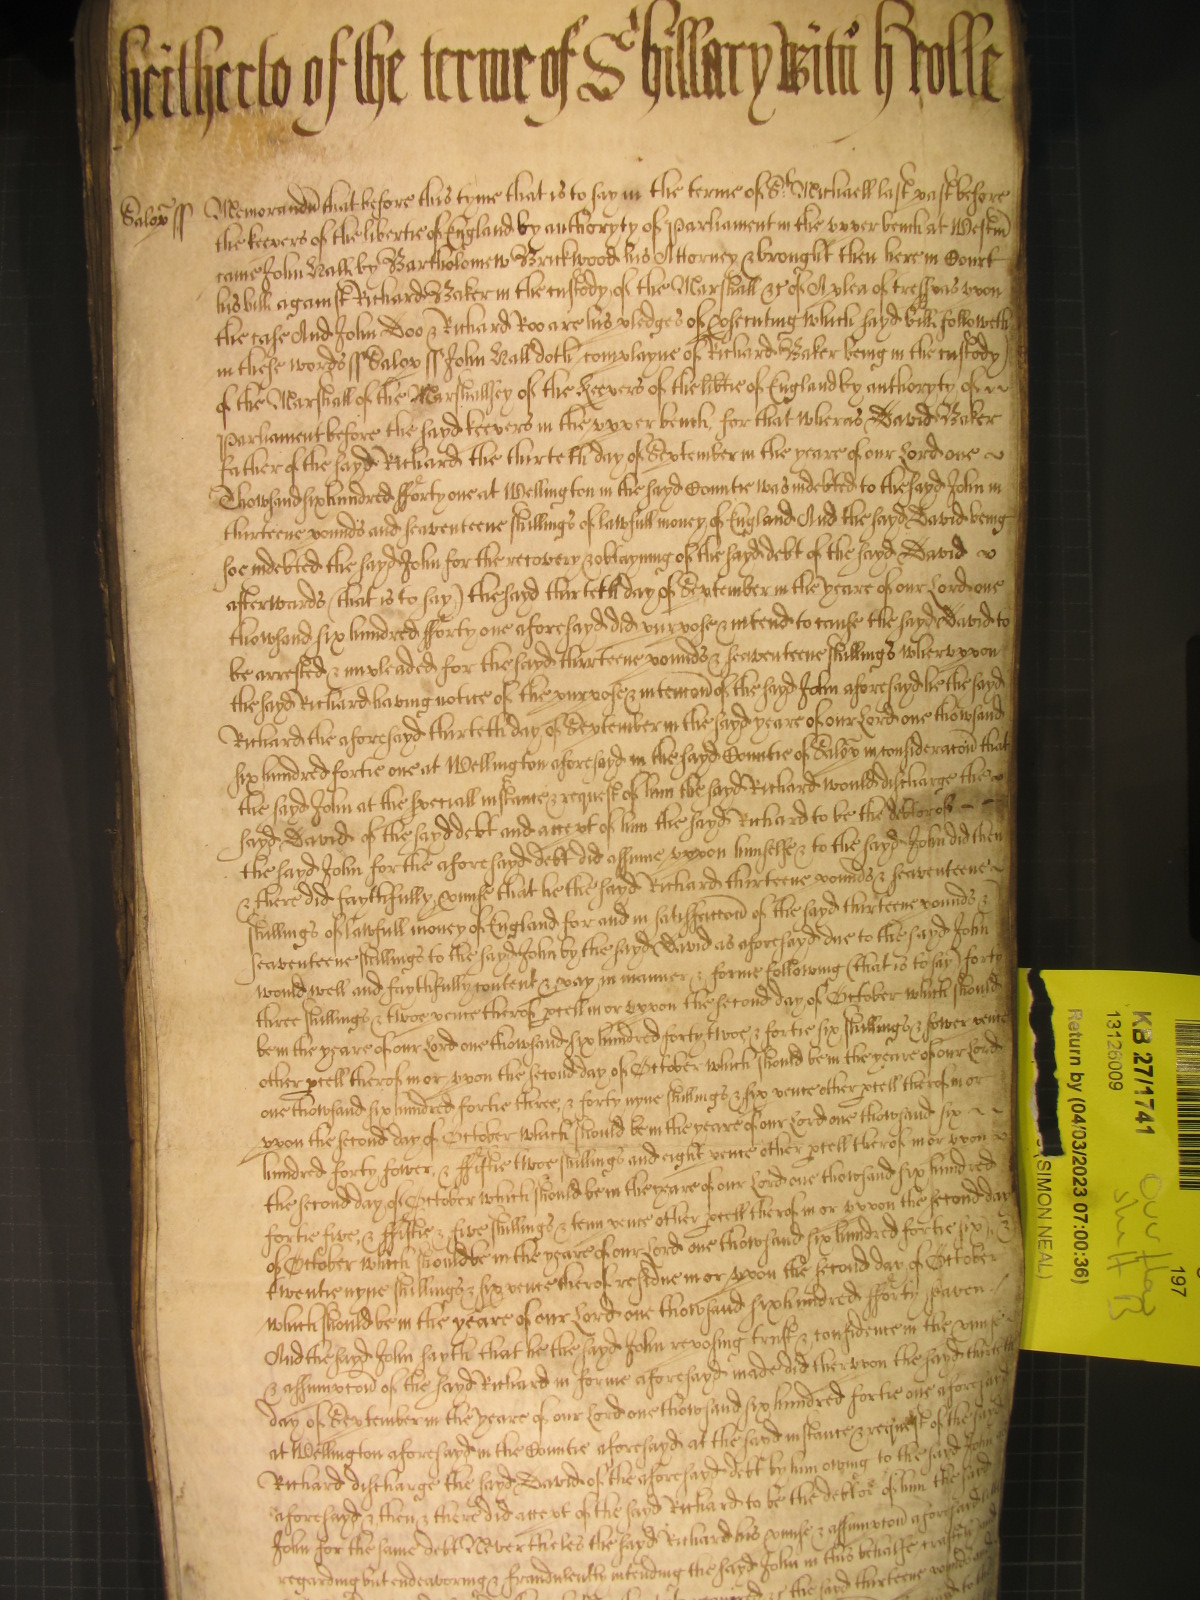 heitherto of the terme of St hillary Witn H Rolle
Salop ss Memorandu that before this tyme that is to say in the terme of St Michaell last past before
the keevers of the libertie of England by authoryty of Parliament in the upper bench at Westm
came John Nall by Bartholomew Brickwood his Attorney & brought then here in Court
his bill against Richard Baker in the custody of the Marshall &c of A plea of tresspas upon
the case And John Doo & Richard Roo are his pledges of psecuting which sayd bill followeth
in these words ss Salop ss John Nall doth complayne of Richard Baker being in the custody
of the Marshall of the Marshallsey of the Keevers of the libtie of England by authoryty of
Parliament before the sayd keevers in the upper bench, for that wheras David Baker
father of the sayd Richard the thirteth day of September in the yeare of our Lord one
Thowsand six hundred fforty one at Wellington in the sayd Countie was indebted to the sayd John in
thirteene pounds and seaventeene shillings of lawfull money of England And the sayd David being
soe indebted the sayd John for the recovery & obtayning of the sayd debt of the sayd David
afterwards (that is to say) the sayd thirteth day of September in the yeare of our Lord one
thowsand six hundred fforty one aforesayd did purpose & intend to cause the sayd David to
be arrested & impleaded for the sayd thirteene pounds & seaventeene shillings wherupon
the sayd Richard having notice of the purpose & intencon of the sayd John aforesayd he the sayd
Richard the aforesayd thirteth day of September in the sayd yeare of our Lord one thowsand
six hundred fortie one at Wellington aforesayd in the sayd Countie of Salop in consideracon that
the sayd John at the speciall instance & request of him the sayd Richard would discharge the
sayd David of the sayd debt and accept of him the sayd Richard to be the debtor of
the sayd John for the aforesayd debt did assume uppon himselfe & to the sayd John did then
& there did faythfully pmise that he the sayd Richard thirteene pounds & seaventeene
shillings of lawfull money of England for and in satisfaccon of the sayd thirteene pounds &
seaventeene shillings to the sayd John by the sayd David as aforesayd due to the sayd John
would well and faythfully content & pay in manner & forme following (that is to say) forty
three shillings & twoe pence therof pcell in or uppon the second day of October which should
be in the yeare of our Lord one thowsand six hundred forty twoe & fortie six shillings & fower pence
other pcell therof in or upon the second day of October which should be in the yeare of our Lord
one thowsand six hundred fortie three, & forty nyne shillings & six pence other pcell therof in or
uppon the second day of October which should be in the yeare of our Lord one thowsand six
hundred forty fower, & ffiftie twoe shillings and eight pence other pcell therof in or upon
the second day of October which should be in the yeare of our Lord one thowsand six hundred
fortie five, & ffiftie & five shillings & tenn pence other pcell therof in or uppon the second day
of October which should be in the yeare of our Lord one thowsand six hundred fortie six, &
twentie nyne shillings & six pence therof residue in or uppon the second day of October
which should be in the yeare of our Lord one thowsand six hundred fforty seaven
And the sayd John sayth that he the sayd John reposing trust & confidence in the pmise
& assumpcon of the sayd Richard in forme aforesayd made did therupon the sayd thirteth
day of September in the yeare of our Lord one thowsand six hundred fortie one aforesayd
at Wellington aforesayd in the Countie aforesayd at the sayd instance & request of the sayd
Richard discharge the sayd David of the aforesayd debt by him owing to the sayd John
aforesayd & then & there did accept of the sayd Richard to be the debtor of him the sayd
John for the same debt Neverthelles the sayd Richard his pmise & assumpcon aforesayd
regarding but endeavoring & fraudulently intending the sayd John in this behalfe
the sayd thirteene pounds
KB 27/1741
13126009
Return by (04/03/2023 07:00:36)
(SIMON NEAL)
197